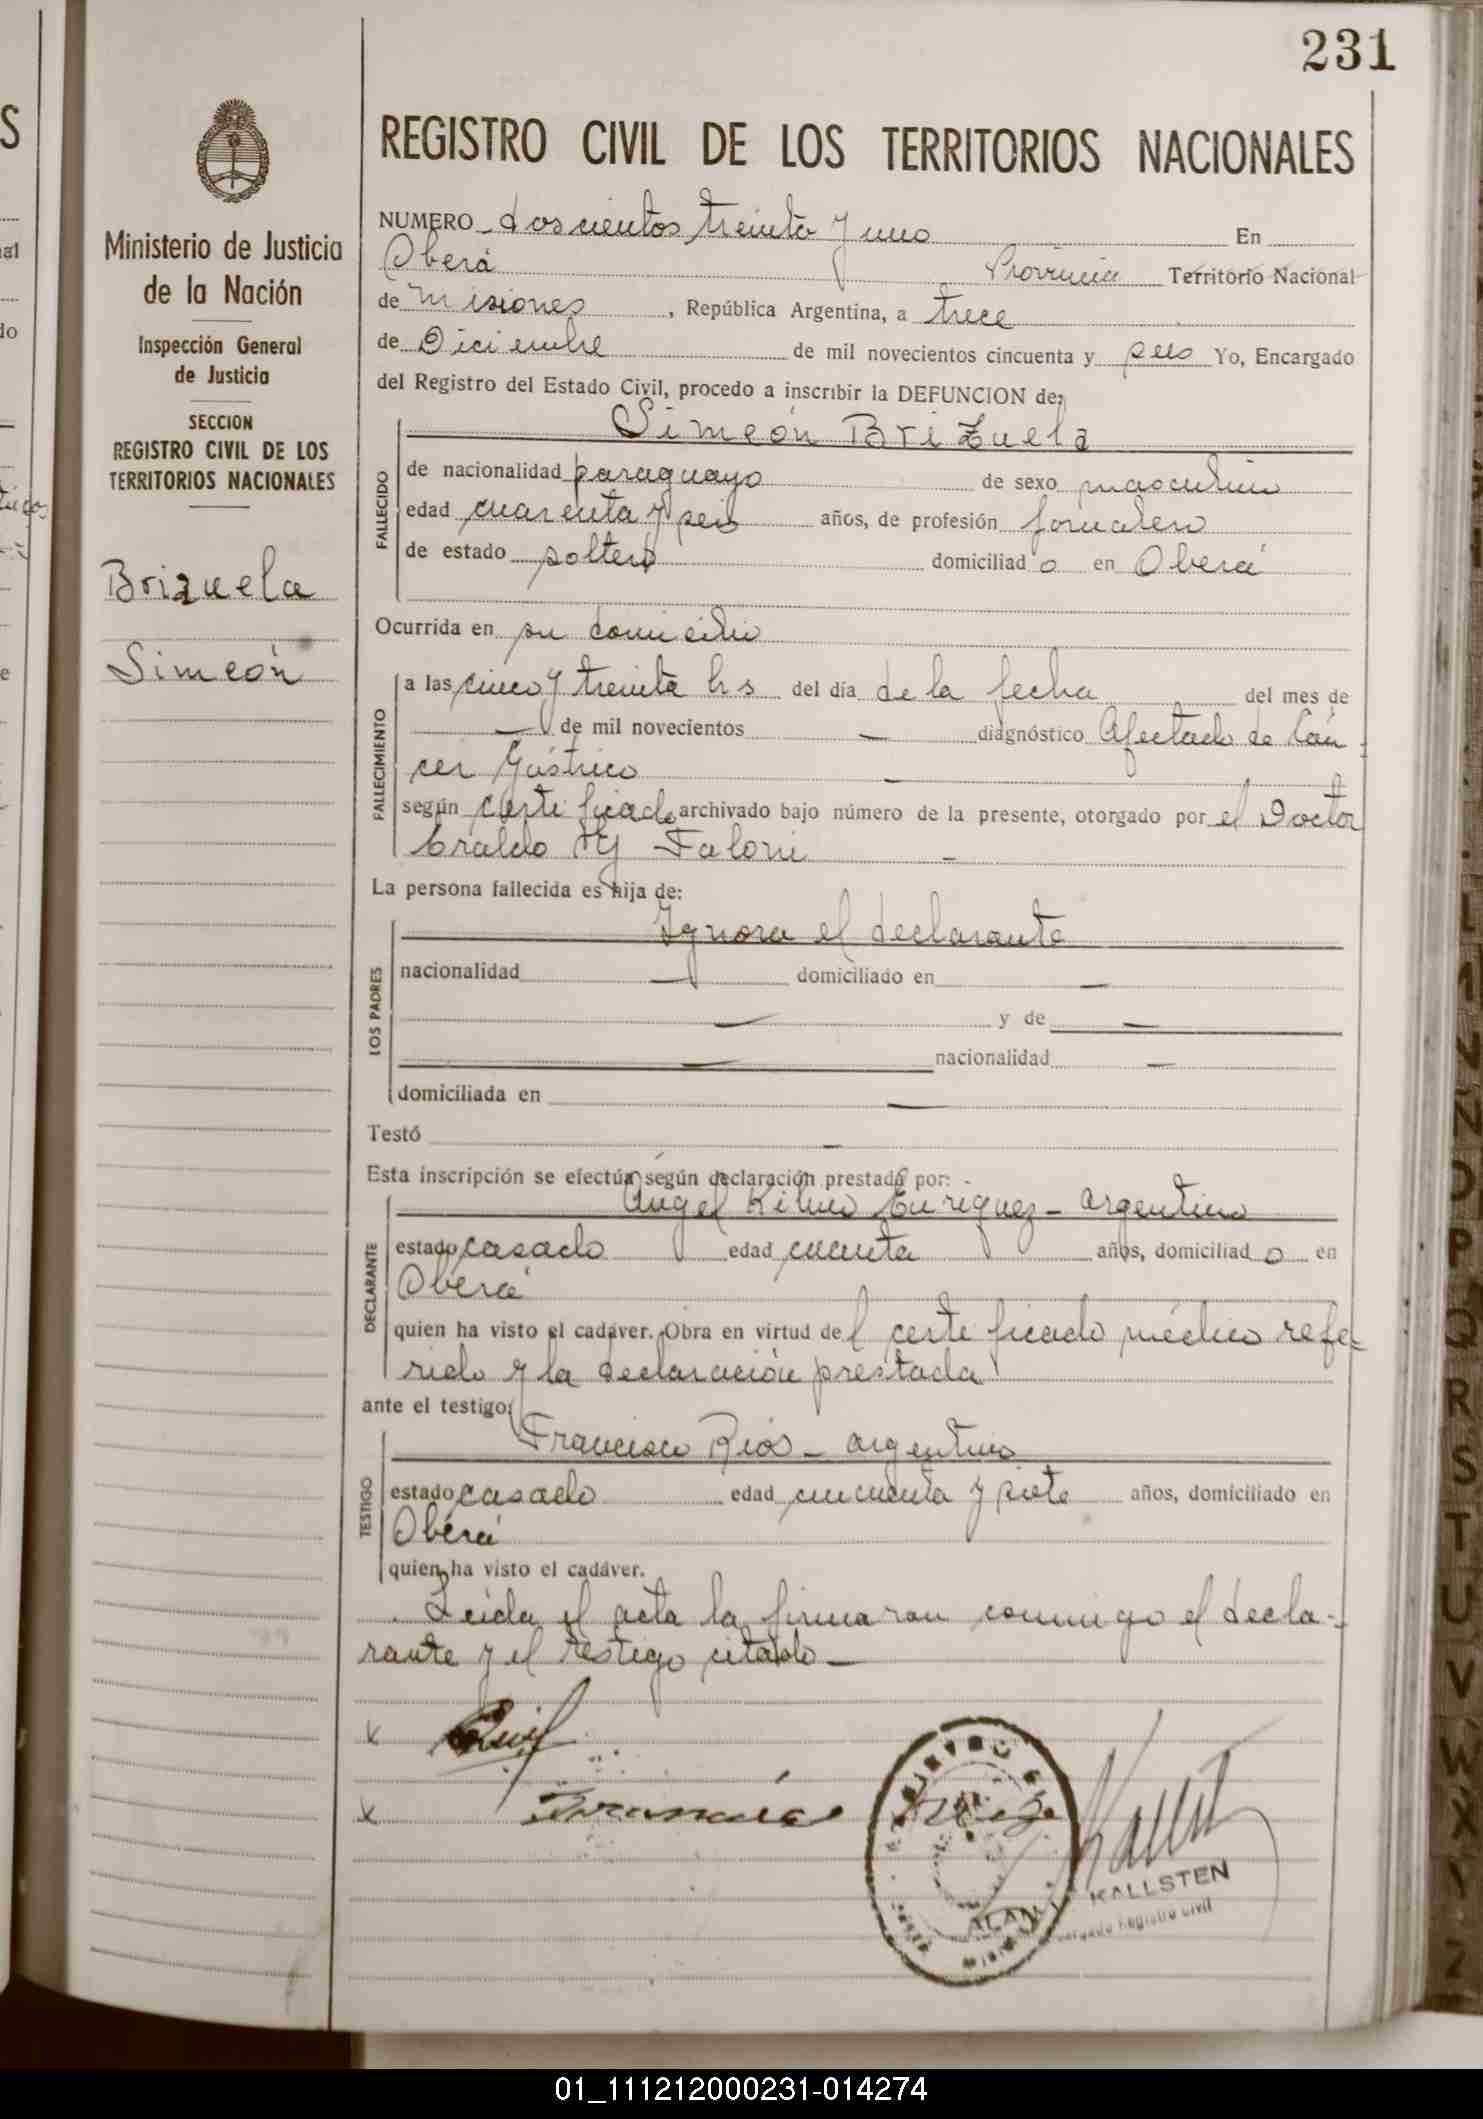 231
REGISTRO CIVIL DE LOS TERRITORIOS NACIONALES
Ministerio de Justicia
de la Nación
Inspección General
de Justicia
SECCION
REGISTRO CIVIL DE LOS
TERRITORIOS NACIONALES
Brizuela
Simeón
NUMERO doscientos treinta y uno En
Oberá Provincia Territorio Nacional
de Misiones, República Argentina, a trece
de Diciembre de mil novecientos cincuenta y seis Yo, Encargado
del Registro del Estado Civil, procedo a inscribir la DEFUNCION de:
Simeón Brizuela
FALLECIDO
de nacionalidad paraguayo de sexo masculino
edad cuarenta y seis años, de profesión jornalero
de estado soltero domiciliad o en Oberá
Ocurrida en su domicilio
FALLECIMIENTO
a las cinco y treinta hs del día de la fecha del mes de
— de mil novecientos — diagnóstico Afectado de Cán-
cer Gástrico —
según certificado archivado bajo número de la presente, otorgado por el Doctor
Faloni —
La persona fallecida es hija de:
Ignora el declarante
LOS PADRES
nacionalidad — domiciliado en —
— y de —
— nacionalidad —
domiciliada en —
Testó —
Esta inscripción se efectúa según declaración prestada por: -
Angel Enriquez - argentino
DECLARANTE
estado casado edad años, domiciliad o en
Oberá
quien ha visto el cadáver. Obra en virtud del certificado médico refe-
rido y la declaración prestada
ante el testigo:
Francisco Ríos - argentino
TESTIGO
estado casado edad cincuenta y siete años, domiciliado en
Oberá
quien ha visto el cadáver.
Leída el acta la firmaron conmigo el decla-
rante y el testigo citado -
x
x
ALAN KALLSTEN
Encargado Registro Civil
01_111212000231-014274